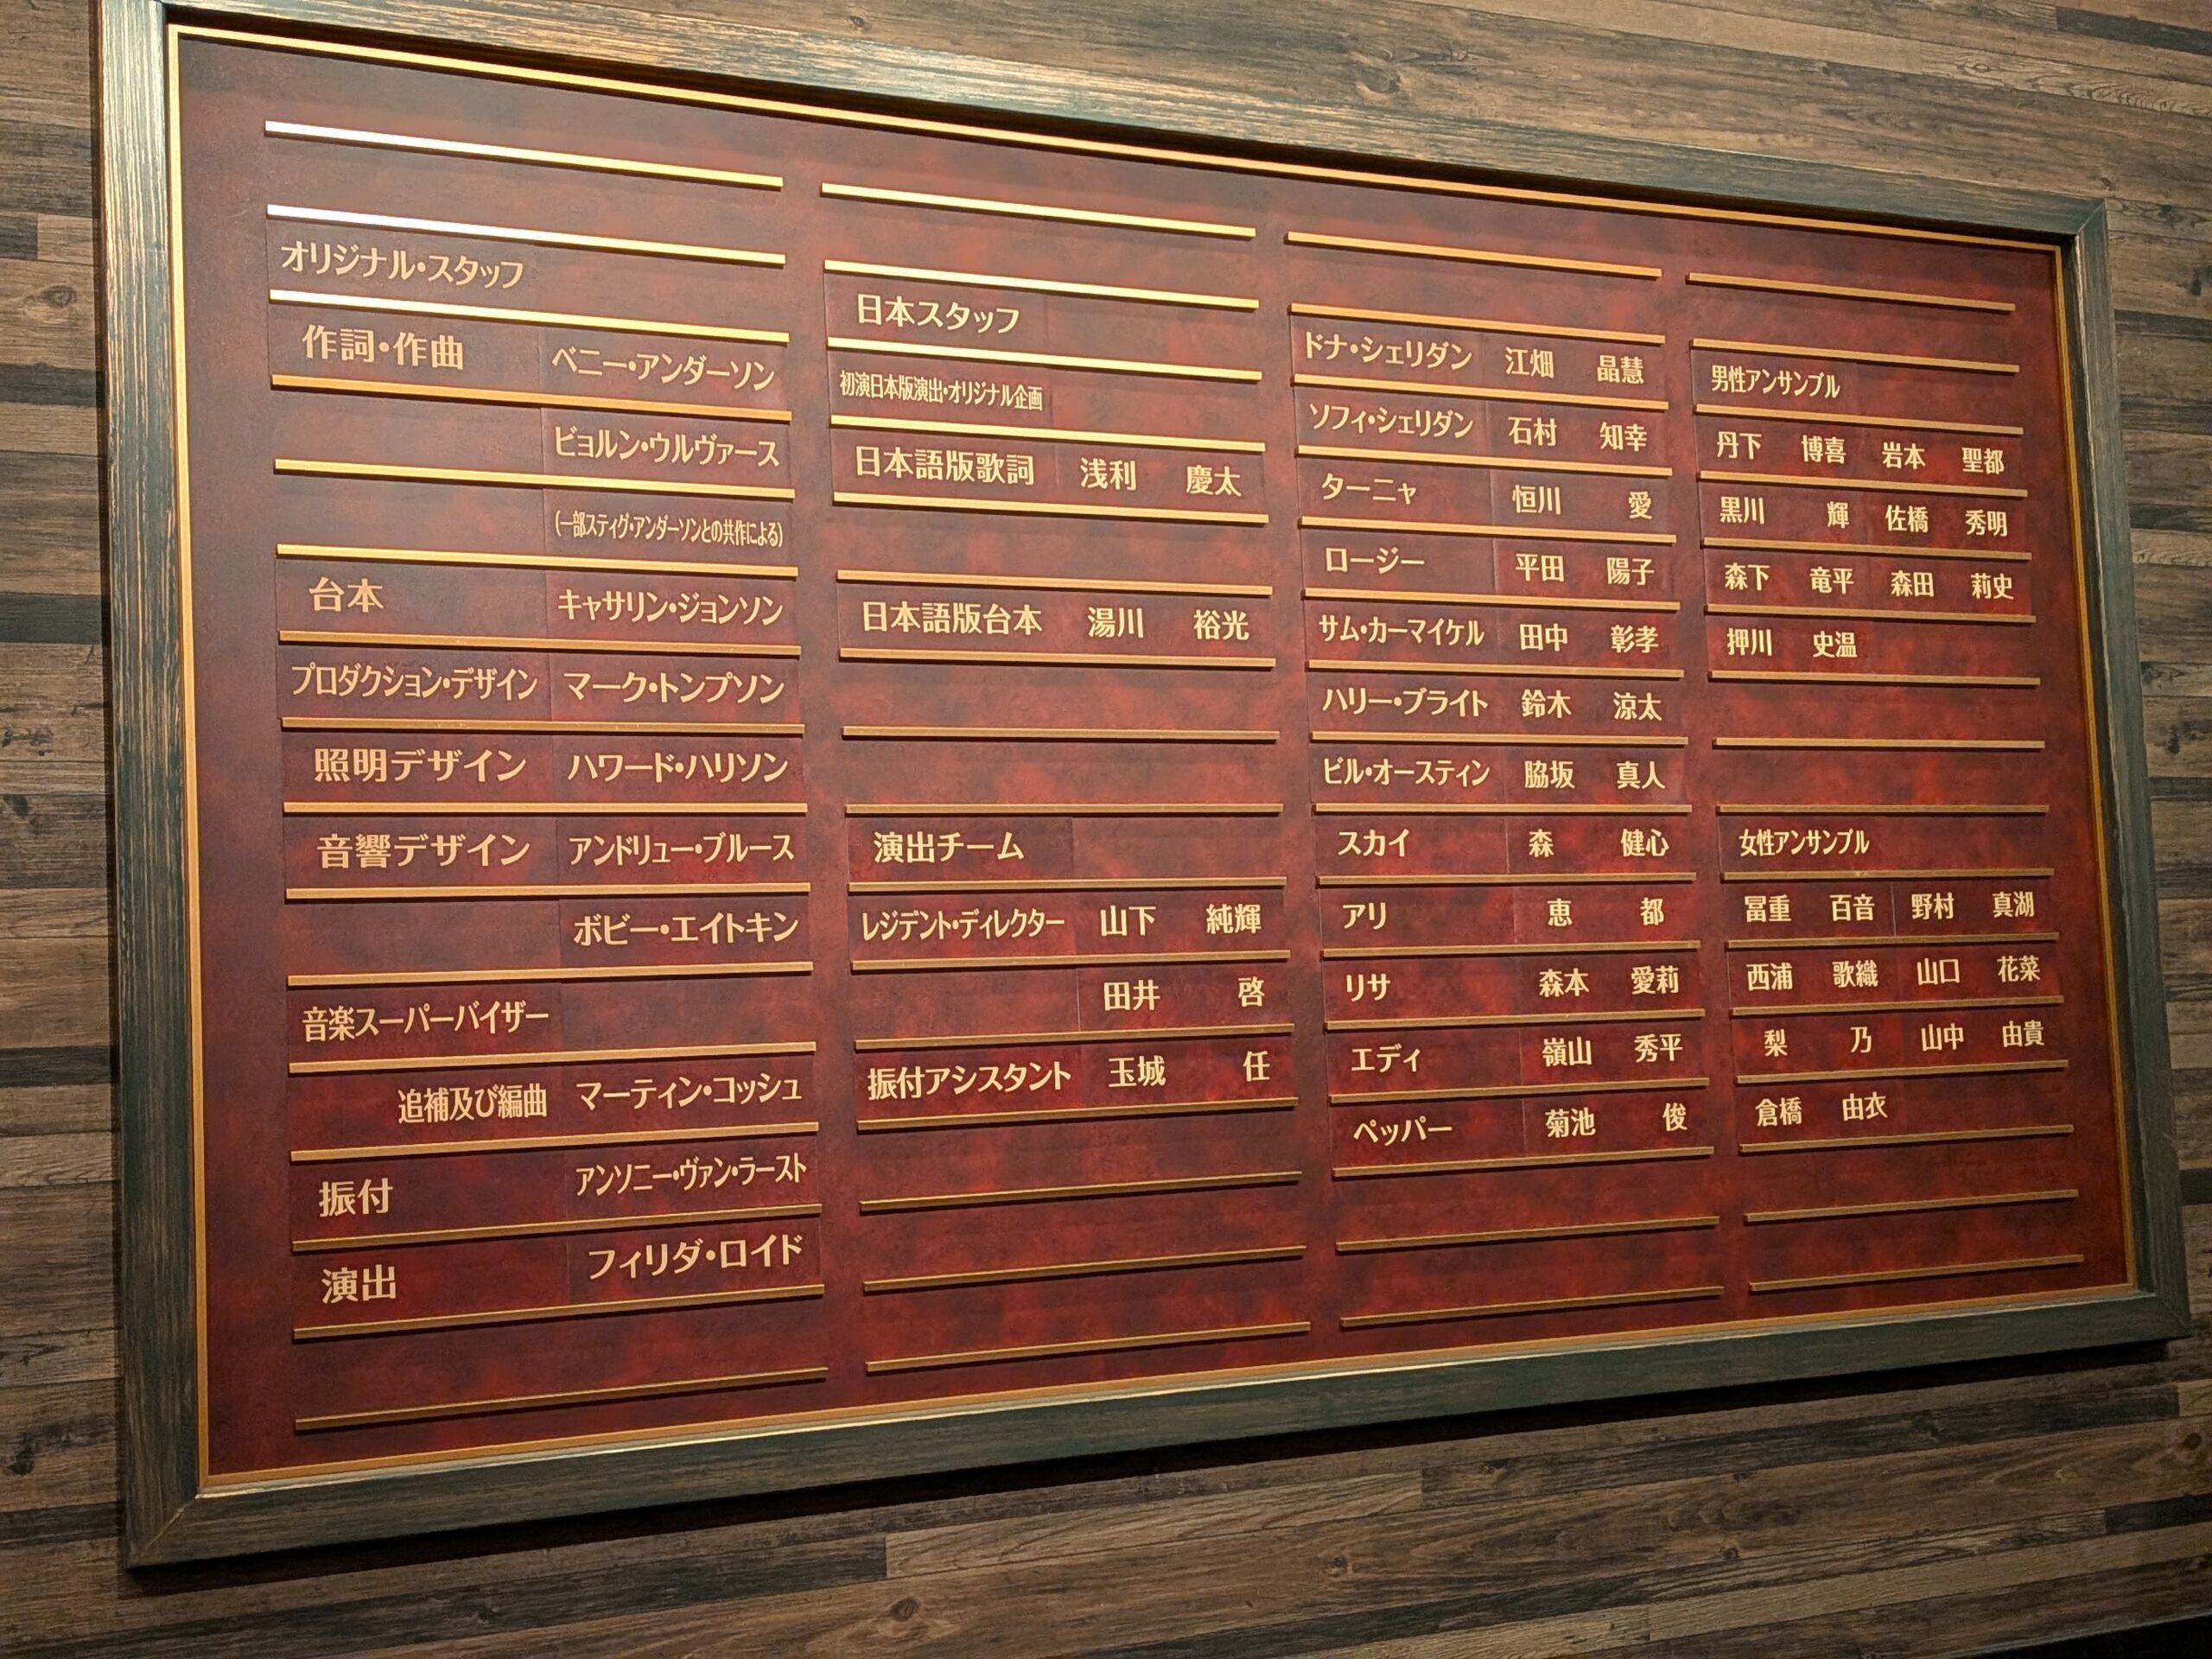 オリジナル・スタッフ
作詞・作曲 ベニー・アンダーソン
ビョルン・ウルヴァース
(一部スティグ・アンダーソンとの共作による)
台本 キャサリン・ジョンソン
プロダクション・デザイン マーク・トンプソン
照明デザイン ハワード・ハリソン
音響デザイン アンドリュー・ブルース
ボビー・エイトキン
音楽スーパーバイザー
追補及び編曲 マーティン・コッシュ
振付 アンソニー・ヴァン・ラースト
演出 フィリダ・ロイド
日本スタッフ
初演日本版演出・オリジナル企画
日本語版歌詞 浅利 慶太
日本語版台本 湯川 裕光
演出チーム
レジデント・ディレクター 山下 純輝
田井 啓
振付アシスタント 玉城 任
ドナ・シェリダン 江畑 晶慧
ソフィ・シェリダン 石村 知幸
ターニャ 恒川 愛
ロージー 平田 陽子
サム・カーマイケル 田中 彰孝
ハリー・ブライト 鈴木 涼太
ビル・オースティン 脇坂 真人
スカイ 森 健心
アリ 恵 都
リサ 森本 愛莉
エディ 嶺山 秀平
ペッパー 菊池 俊
男性アンサンブル
丹下 博喜 岩本 聖都
黒川 輝 佐橋 秀明
森下 竜平 森田 莉史
押川 史温
女性アンサンブル
冨重 百音 野村 真湖
西浦 歌織 山口 花菜
梨 乃 山中 由貴
倉橋 由衣